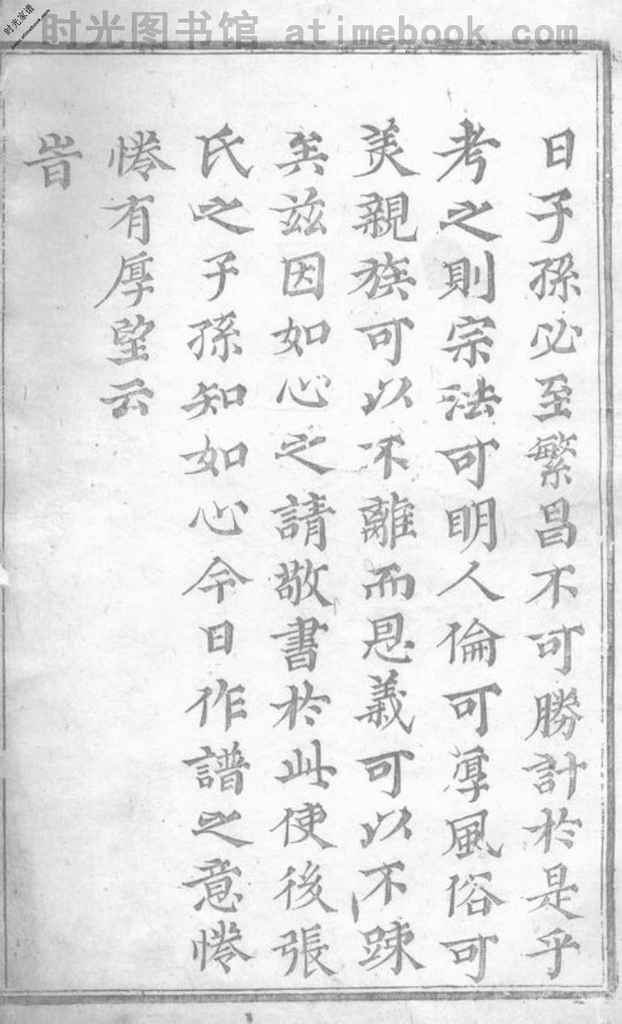 时光图书馆 atimebook.com
时光家谱
日子孫必至繁昌不可勝計於是乎
考之則宗法可明人倫可厚風俗可
美親族可以不離而恩義可以不踈
矣茲因如心之請敬書於此使後張
氏之子孫知如心今日作譜之意惓
惓有厚望云
旹